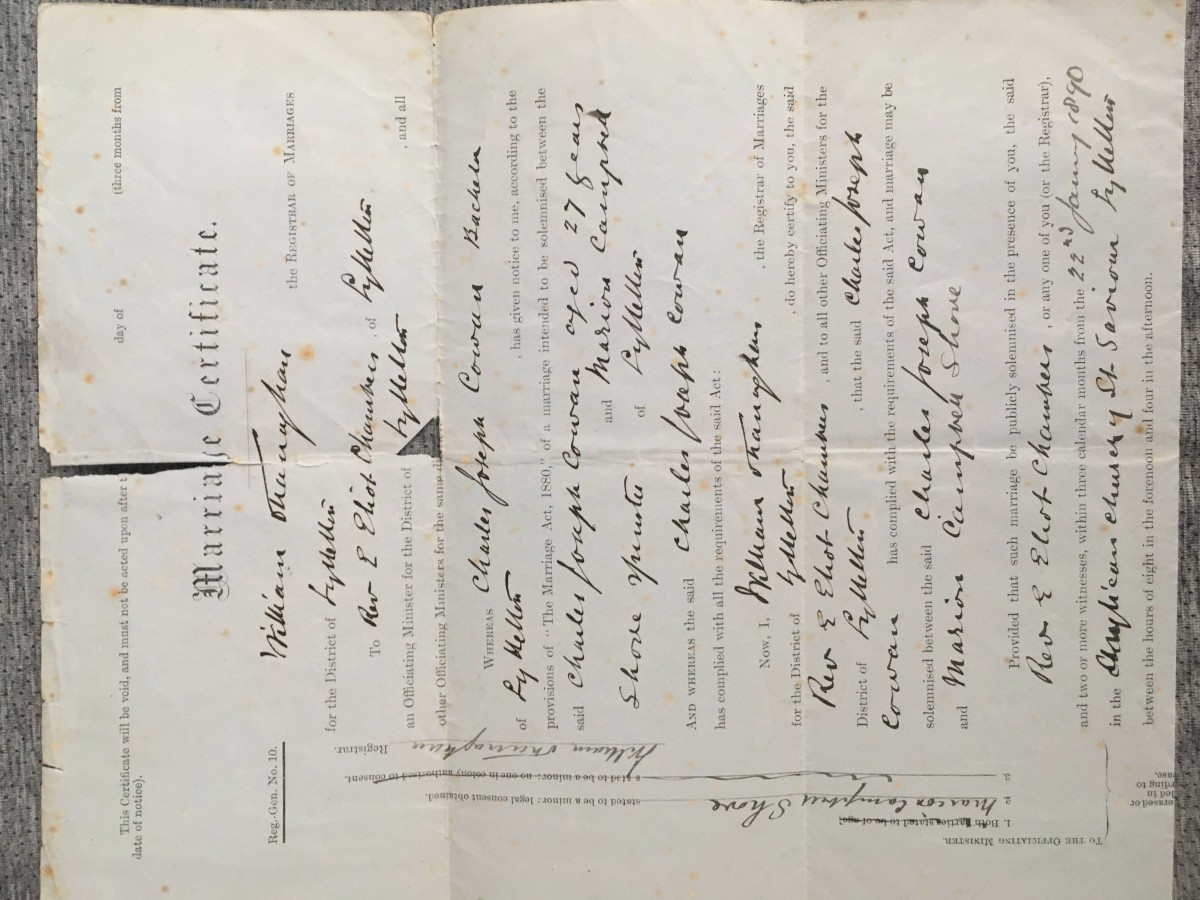 This Certificate will be void, and must not be acted upon after t day of (three months from
date of notice).
Marriage Certificate.
Reg.-Gen. No. 10.
William the REGISTRAR OF MARRIAGES
for the District of Lyttelton
To Rev E Eliot Chambers, of Lyttelton
an Officiating Minister for the District of Lyttelton, and all
other Officiating Ministers for the same
WHEREAS Charles Joseph Cowan Bachelor
of Lyttelton, has given notice to me, according to the
provisions of "The Marriage Act, 1880," of a marriage intended to be solemnised between the
said Charles Joseph Cowan aged 27 years
and Marion Campbell
Shove spinster of Lyttelton
AND WHEREAS the said Charles Joseph Cowan
has complied with all the requirements of the said Act:
Now, I, William, the Registrar of Marriages
for the District of Lyttelton, do hereby certify to you, the said
Rev E Eliot Chambers, and to all other Officiating Ministers for the
District of Lyttelton, that the said Charles Joseph
Cowan has complied with the requirements of the said Act, and marriage may be
solemnised between the said Charles Joseph Cowan
and Marion Campbell Shove
Provided that such marriage be publicly solemnised in the presence of you, the said
Rev E Eliot Chambers, or any one of you (or the Registrar),
and two or more witnesses, within three calendar months from the 22nd January 1890
in the Anglican church of St Saviour Lyttelton
between the hours of eight in the forenoon and four in the afternoon.
TO THE OFFICIATING MINISTER.
1. Both parties stated to be of age:
2. Marion Campbell Shove stated to be a minor: legal consent obtained.
3. stated to be a minor: no one in colony authorised to consent.
William Registrar.
erased or
led in
rding to
ase.